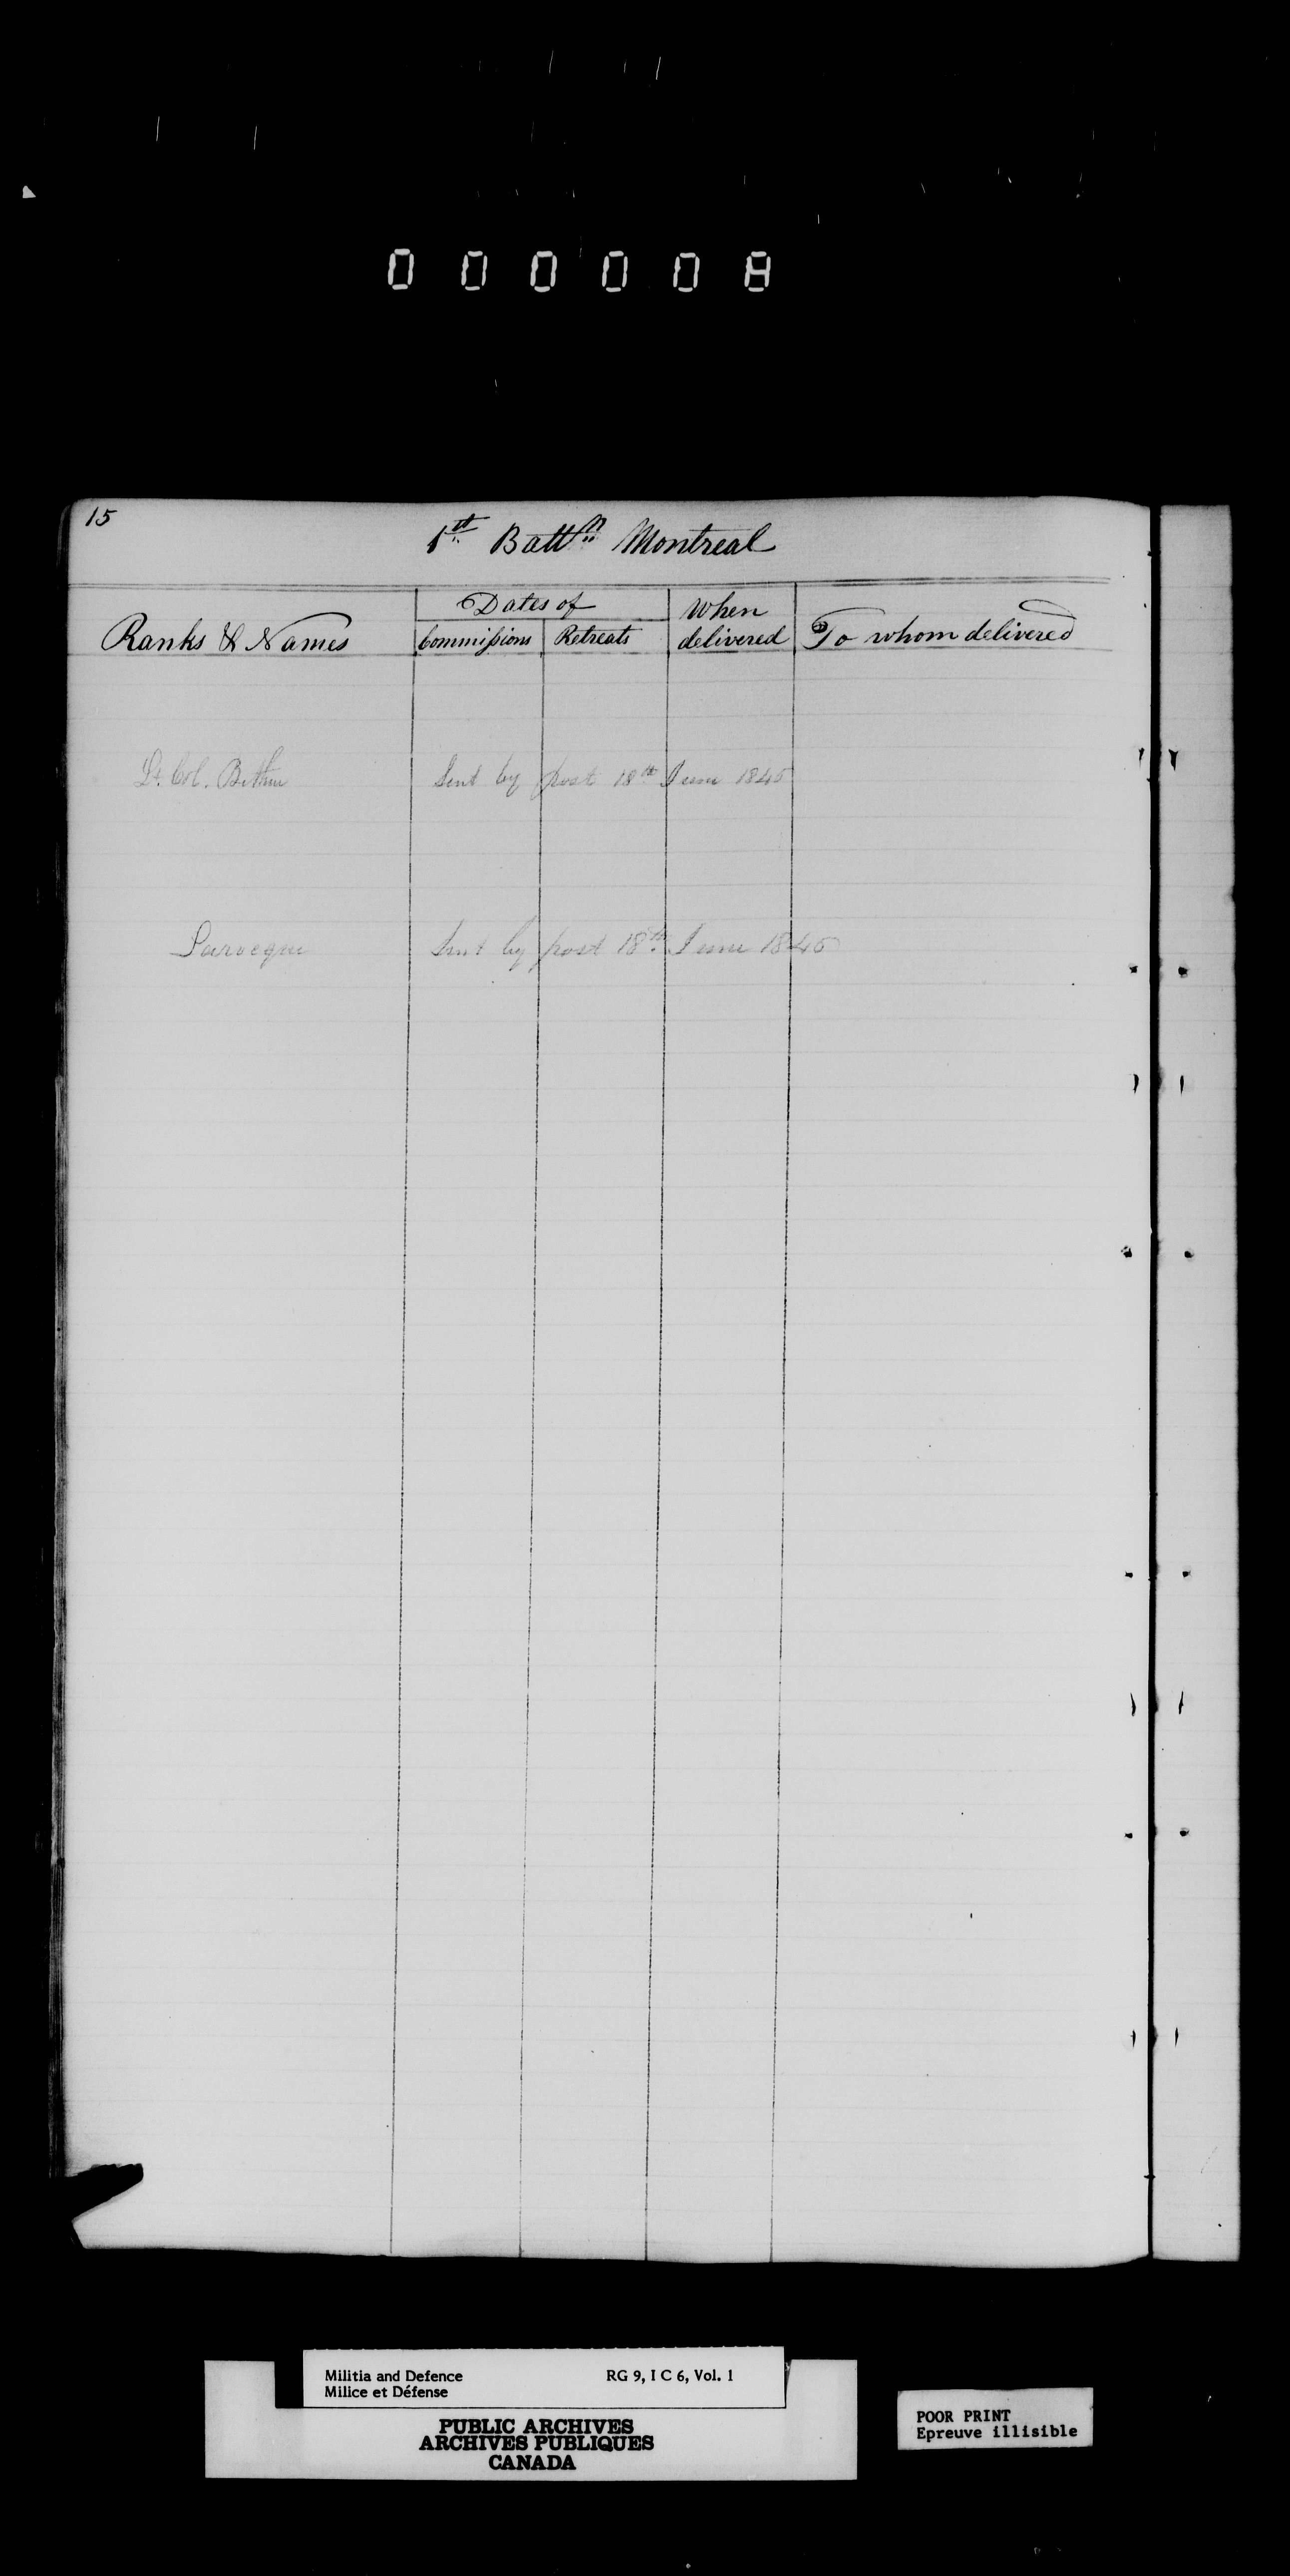 000008
15
1st Battn Montreal
Ranks & Names
Dates of
Commissions
Retreats
When
delivered
To whom delivered
Lt. Col. Bethune Sent by post 18th June 1846
Larocque Sent by post 18th June 1846
Militia and Defence RG 9, I C 6, Vol. 1
Milice et Défense
PUBLIC ARCHIVES
ARCHIVES PUBLIQUES
CANADA
POOR PRINT
Epreuve illisible